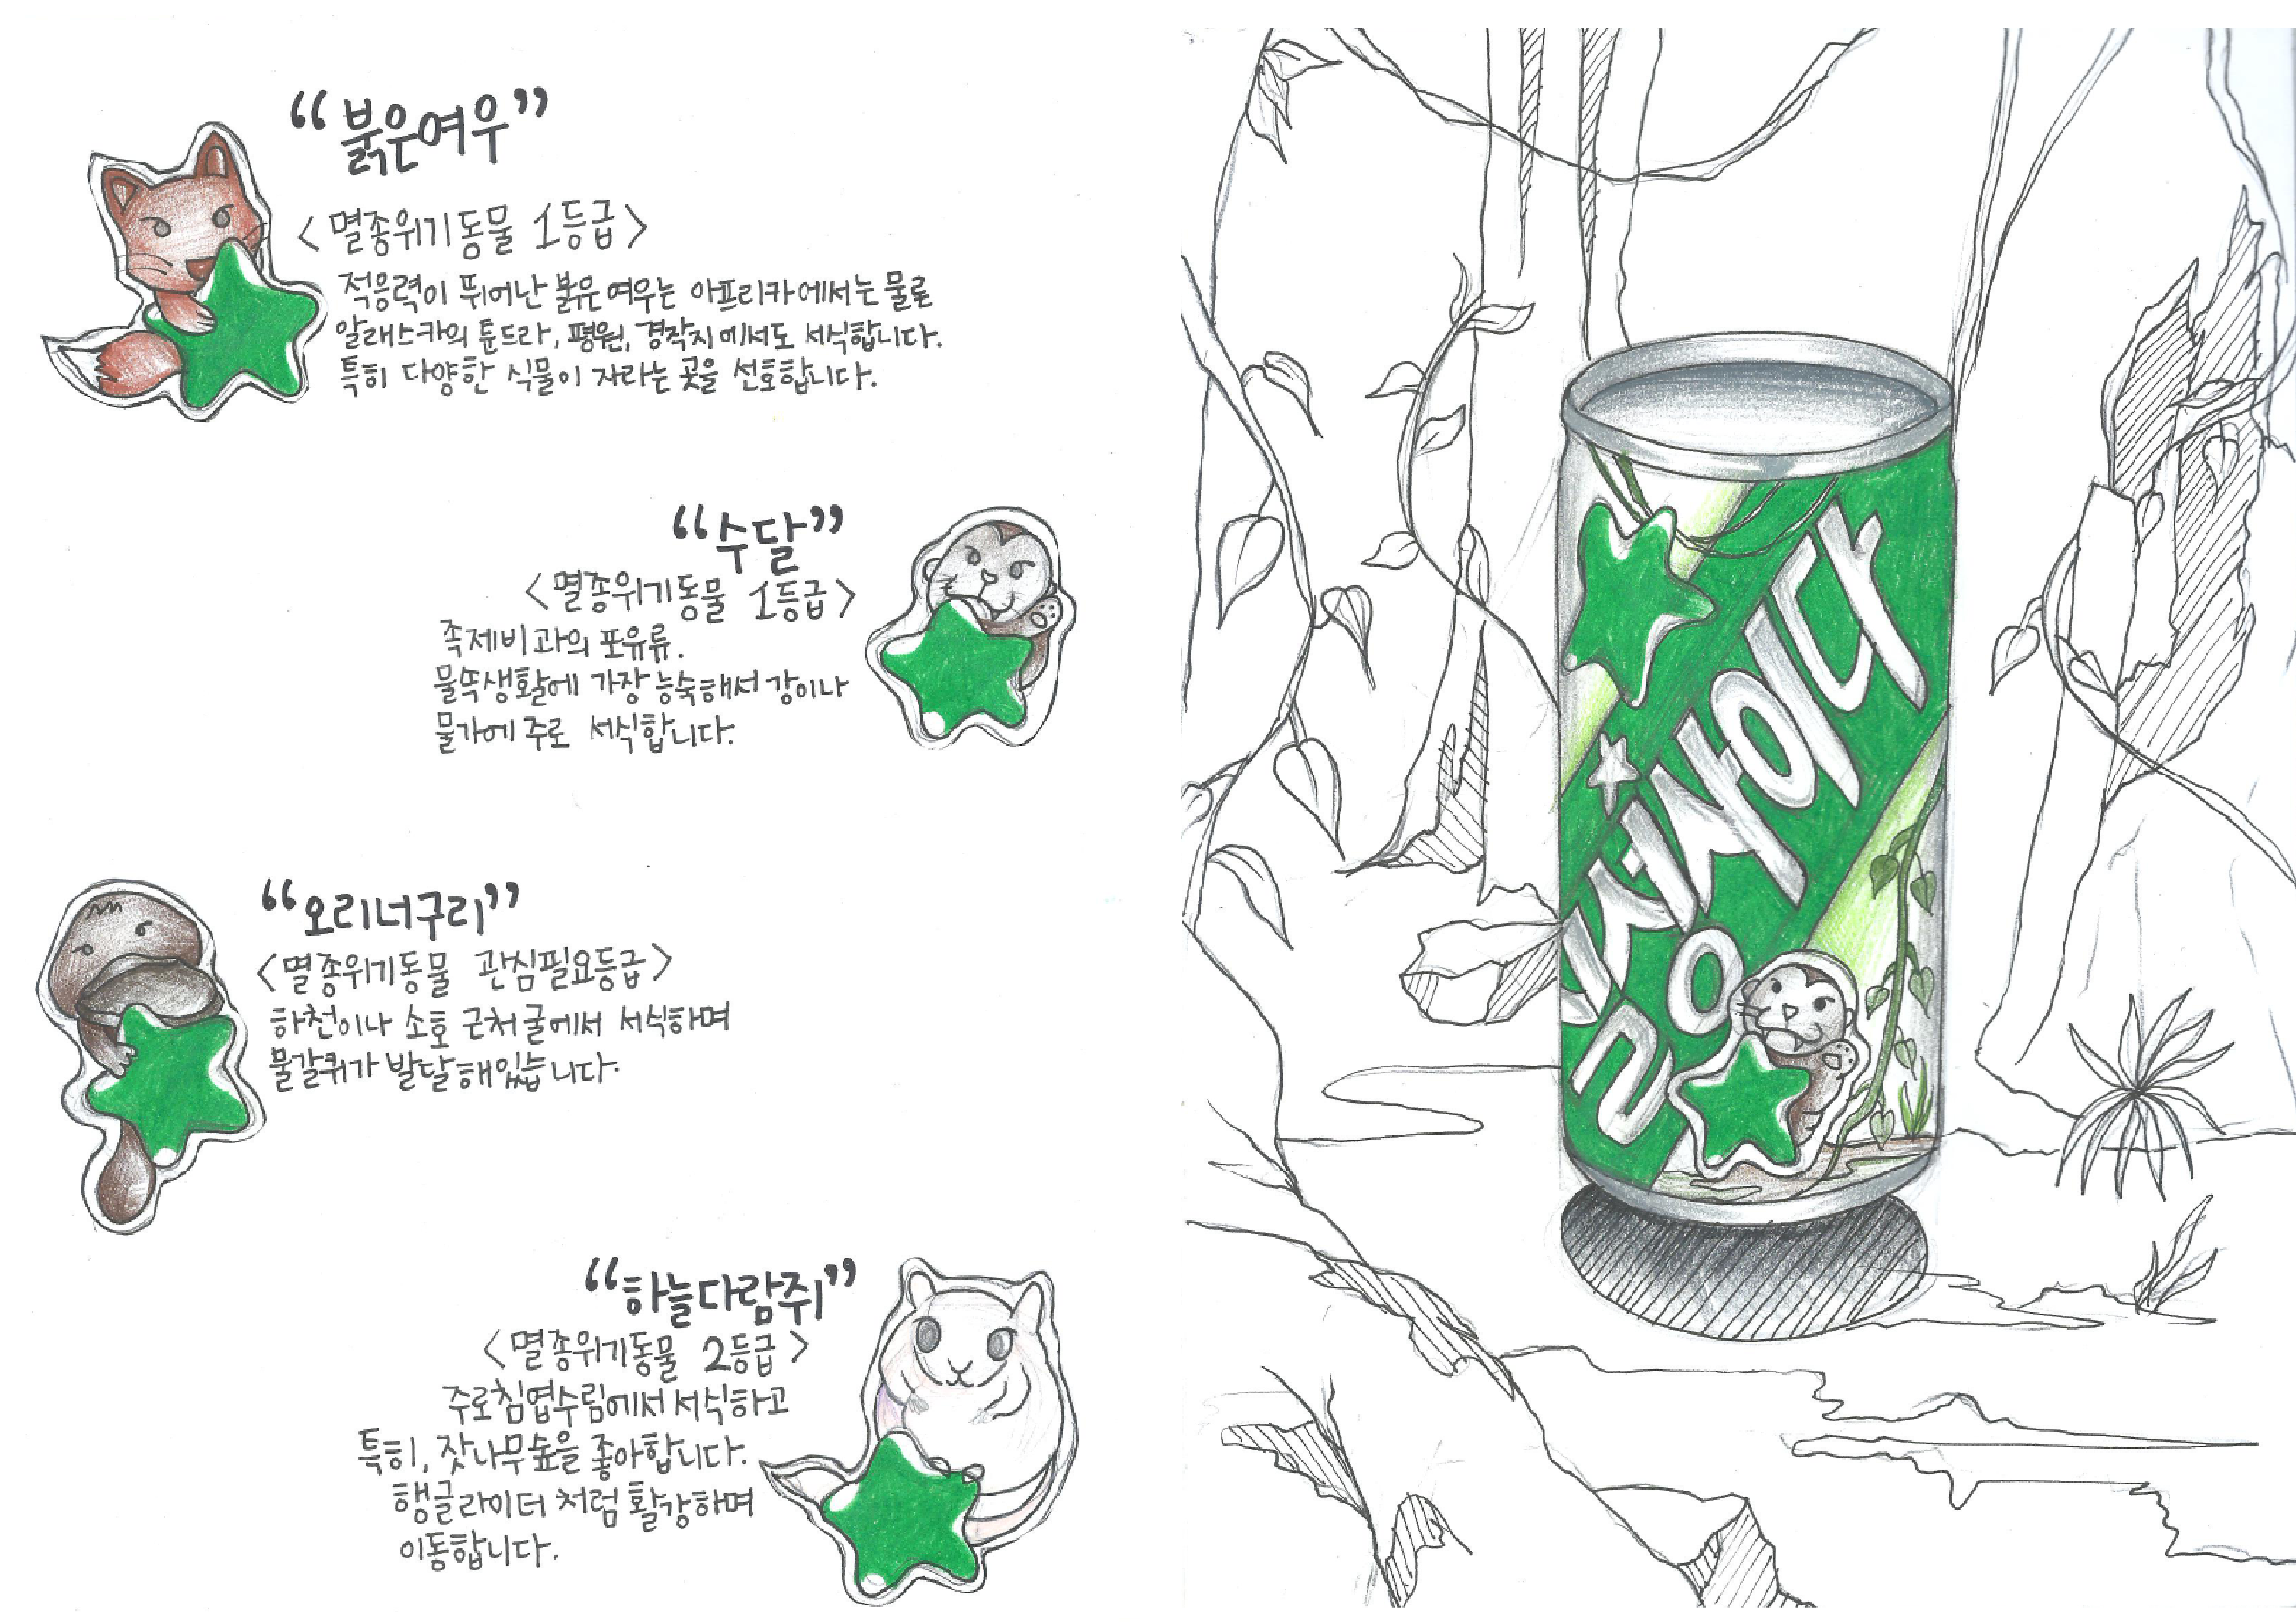 “붉은여우”
<멸종위기동물 1등급>
적응력이 뛰어난 붉은여우는 아프리카에서는 물론
알래스카의 툰드라, 평원, 경작지에서도 서식합니다.
특히 다양한 식물이 자라는 곳을 선호합니다.
“수달”
<멸종위기동물 1등급>
족제비과의 포유류.
물속생활에 가장 능숙해서 강이나
물가에 주로 서식합니다.
“오리너구리”
<멸종위기동물 관심필요등급>
하천이나 소호 근처 굴에서 서식하며
물갈퀴가 발달해있습니다.
“하늘다람쥐”
<멸종위기동물 2등급>
주로침엽수림에서 서식하고
특히, 잣나무숲을 좋아합니다.
행글라이더 처럼 활강하며
이동합니다.
칠성사이다